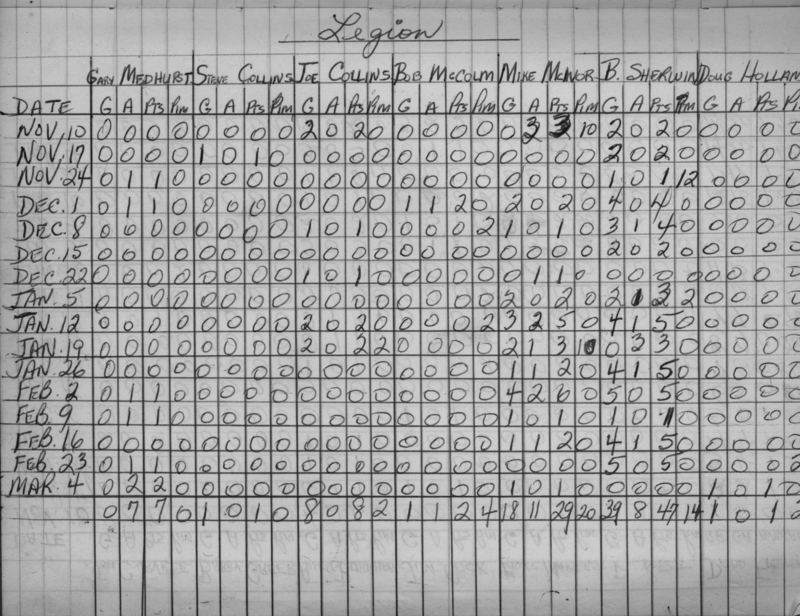 Legion
GARY MEDHURST STEVE COLLINS JOE COLLINS BOB McCOLM MIKE McIVOR B. SHERWIN DOUG HOLLAM
DATE G A Pts Pim G A Pts Pim G A Pts Pim G A Pts Pim G A Pts Pim G A Pts Pim G A Pts Pi
NOV. 10 0 0 0 0 0 0 0 0 2 0 2 0 0 0 0 0 0 3 3 10 2 0 2 0 0 0 0 0
NOV. 17 0 0 0 0 1 0 1 0 0 0 0 0 0 0 0 0 0 0 0 0 2 0 2 0 0 0 0 0
NOV. 24 0 1 1 0 0 0 0 0 0 0 0 0 0 0 0 0 0 0 0 0 1 0 1 12 0 0 0 0
DEC. 1 0 1 1 0 0 0 0 0 0 0 0 0 1 1 2 0 2 0 2 0 4 0 4 0 0 0 0 0
DEC. 8 0 0 0 0 0 0 0 0 1 0 1 0 0 0 0 2 1 0 1 0 3 1 4 0 0 0 0 0
DEC. 15 0 0 0 0 0 0 0 0 0 0 0 0 0 0 0 0 0 0 0 0 2 0 2 0 0 0 0 0
DEC. 22 0 0 0 0 0 0 0 0 1 0 1 0 0 0 0 0 0 1 1 0 0 0 0 0 0 0 0 0
JAN. 5 0 0 0 0 0 0 0 0 0 0 0 0 0 0 0 0 2 0 2 0 2 1 3 2 0 0 0 0
JAN. 12 0 0 0 0 0 0 0 0 2 0 2 0 0 0 0 2 3 2 5 0 4 1 5 0 0 0 0 0
JAN. 19 0 0 0 0 0 0 0 0 2 0 2 2 0 0 0 0 2 1 3 10 0 3 3 0 0 0 0 0
JAN. 26 0 0 0 0 0 0 0 0 0 0 0 0 0 0 0 0 1 1 2 0 4 1 5 0 0 0 0 0
FEB. 2 0 1 1 0 0 0 0 0 0 0 0 0 0 0 0 0 4 2 6 0 5 0 5 0 0 0 0 0
FEB. 9 0 1 1 0 0 0 0 0 0 0 0 0 0 0 0 0 1 0 1 0 1 0 1 0 0 0 0 0
FEB. 16 0 0 0 0 0 0 0 0 0 0 0 0 0 0 0 0 1 1 2 0 4 1 5 0 0 0 0 0
FEB. 23 0 1 1 0 0 0 0 0 0 0 0 0 0 0 0 0 0 0 0 0 5 0 5 0 0 0 0 2
MAR. 4 0 2 2 0 0 0 0 0 0 0 0 0 0 0 0 0 1 0 1 0 0 0 0 0 1 0 1 0
0 7 7 0 1 0 1 0 8 0 8 2 1 1 2 4 18 11 29 20 39 8 47 14 1 0 1 2